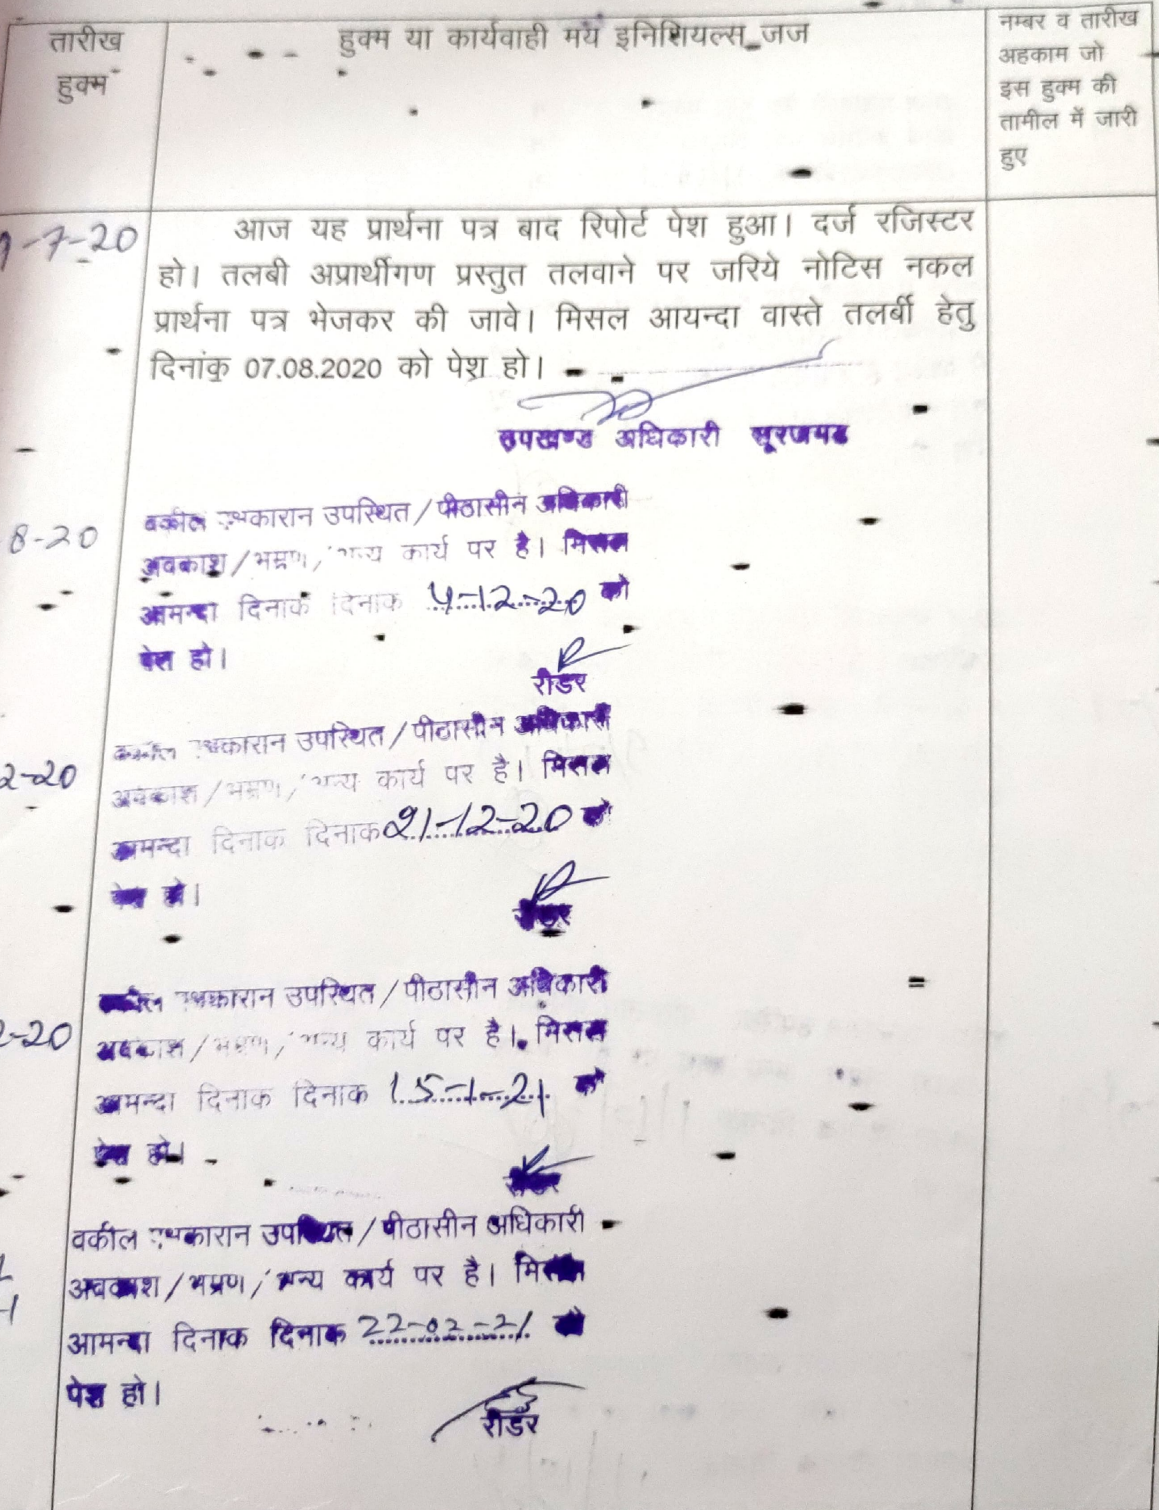 तारीख
हुक्म
हुक्म या कार्यवाही मय इनिशियल्स जज
नम्बर व तारीख
अहकाम जो
इस हुक्म की
तामील में जारी
हुए
-7-20
आज यह प्रार्थना पत्र बाद रिपोर्ट पेश हुआ। दर्ज रजिस्टर
हो। तलबी अप्रार्थीगण प्रस्तुत तलवाने पर जरिये नोटिस नकल
प्रार्थना पत्र भेजकर की जावे। मिसल आयन्दा वास्ते तलबी हेतु
दिनांक 07.08.2020 को पेश हो।
उपखण्ड अधिकारी सूरजगढ
8-20
वकील उपस्थित/पीठासीन अधिकारी
अवकाश/भम्रण/अन्य कार्य पर है। मिसल
आमन्दा दिनाक दिनाक 4-12-20 को
पेश हो।
रीडर
2-20
वकील उपस्थित/पीठासीन अधिकारी
अवकाश/भम्रण/अन्य कार्य पर है। मिसल
आमन्दा दिनाक दिनाक 21-12-20 को
पेश हो।
रीडर
2-20
वकील उपस्थित/पीठासीन अधिकारी
अवकाश/भम्रण/अन्य कार्य पर है। मिसल
आमन्दा दिनाक दिनाक 15-1-21 को
पेश हो।
रीडर
वकील उपस्थित/पीठासीन अधिकारी
अवकाश/भम्रण/अन्य कार्य पर है। मिसल
आमन्दा दिनाक दिनाक 22-02-21 को
पेश हो।
रीडर